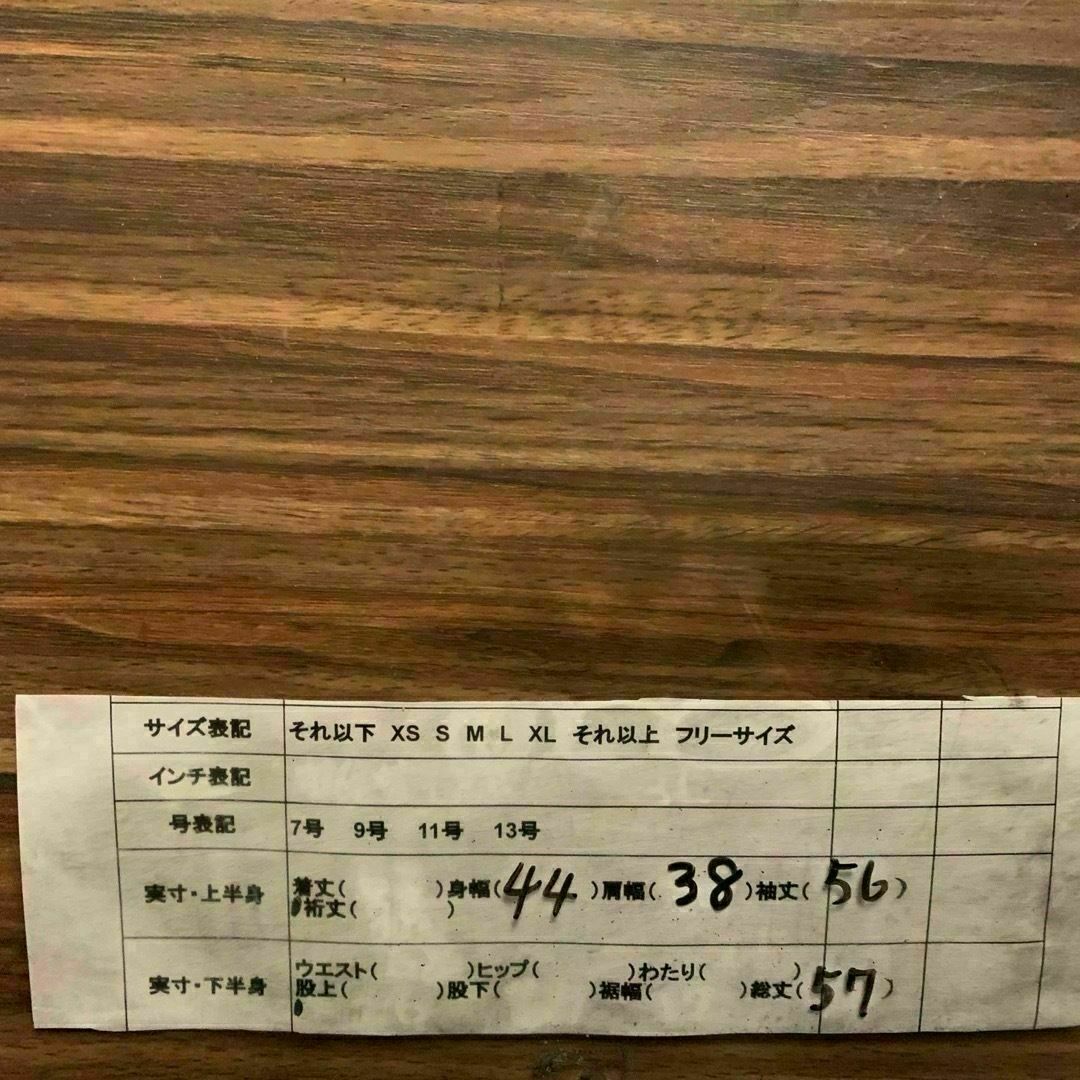 サイズ表記 それ以下 XS S M L XL それ以上 フリーサイズ
インチ表記
号表記 7号 9号 11号 13号
実寸・上半身 着丈( )身幅(44)肩幅(38)袖丈(56)
裄丈( )
実寸・下半身 ウエスト( )ヒップ( )わたり( )
股上( )股下( )裾幅( )総丈(57)